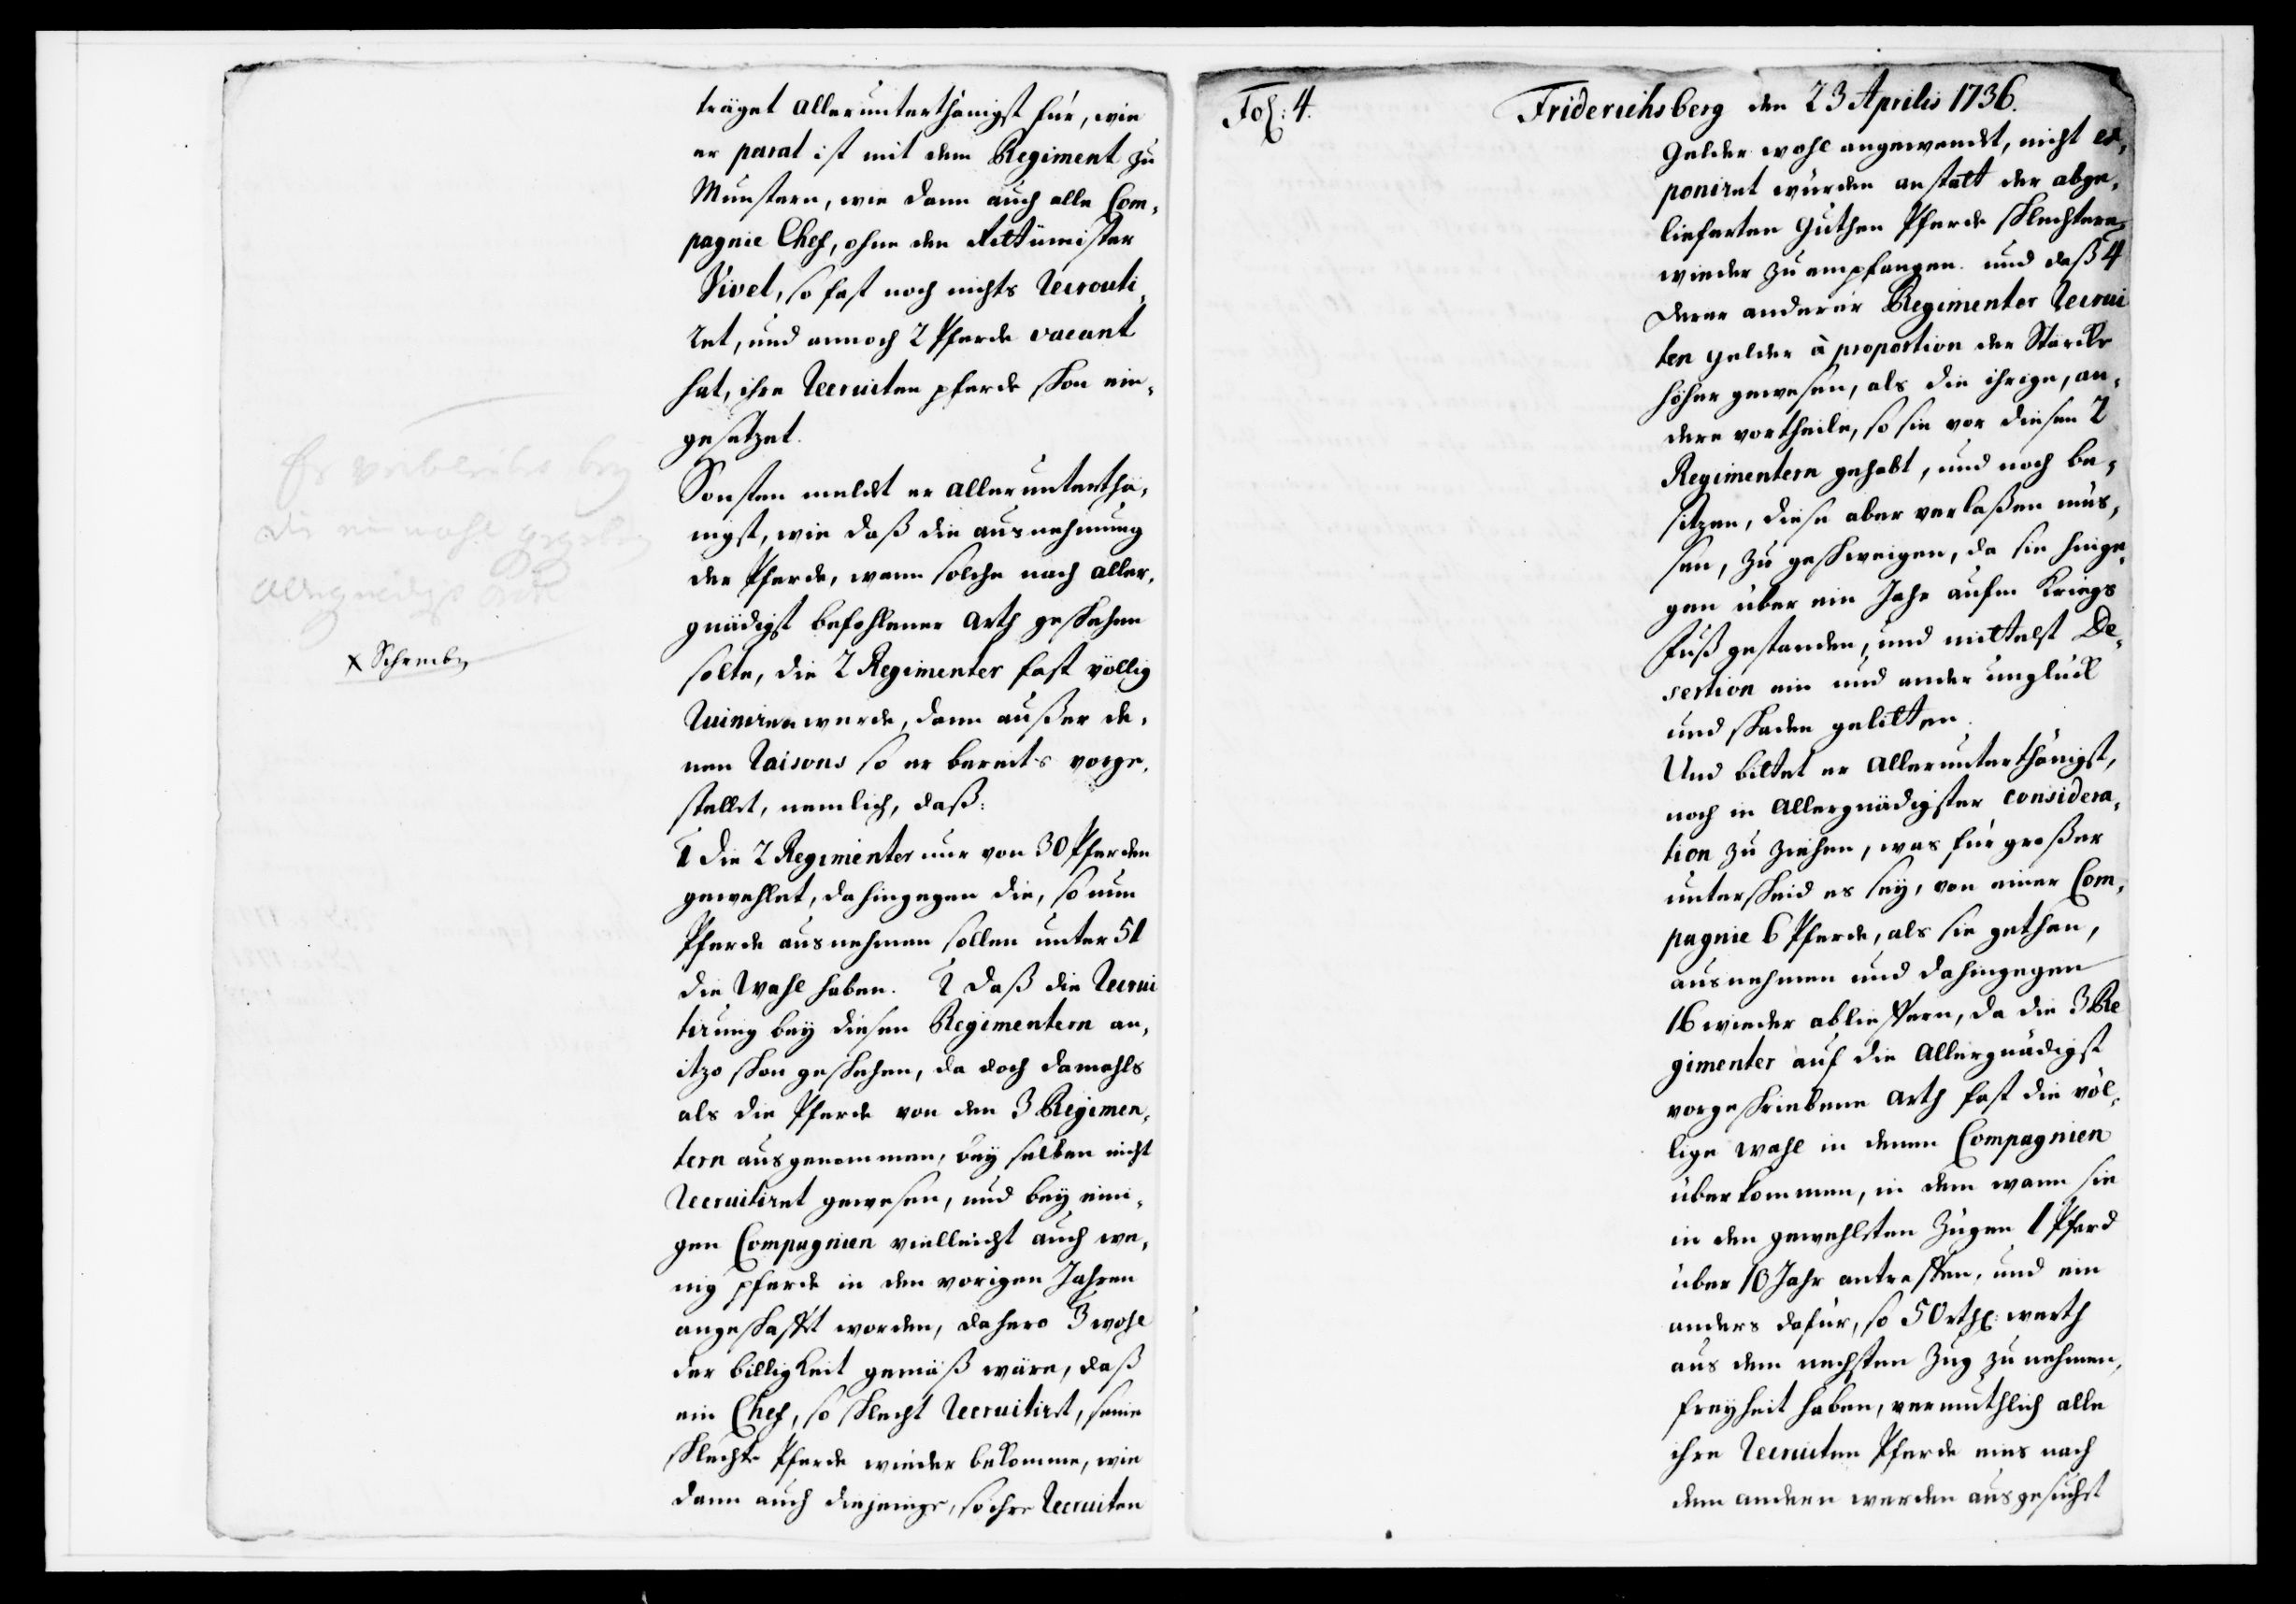 träget allerunterthänigst für, wie
er parat ist mit dem Regiment zu
Munstern, wie dann auch alle Com¬
pagnie Chef, ohne den Rittümister
Vivet, so fast noch nichts Recrouti¬
ret, und annoch 2 Pferde vacant
hat, ihre Recruiten pferde schon ein¬
gesetzet.
Sonsten meldet er allerunterthä¬
nigst, wie daß die ausnehmung
der Pferde, wann solche nach aller¬
gnädigst befohlener arth geschehen
solte, die 2 Regimenter fast völlig
Ruiniren werde, dann außer de¬
nen Raisons so er bereits vorge¬
stellet, nemlich, daß:
1 die 2 Regimenter nur von 30 Pferden
gewehlet, dahingegen die, so nun
Pferde ausnehmen sollen unter 51
die Wahl haben. 2 daß die Recrui
tirung bey diesen Regimentern an¬
itzo schon geschehen, da doch damahls
als die Pferde von den 3 Regimen¬
tern ausgenommen, bey selben nicht
Recruitiret gewesen, und bey eini¬
gen Compagnien vielleicht auch we¬
nig pferde in den vorigen Jahren
angeschafft worden, dahero 3 wohl
der billigkeit gemäß wäre, daß
ein Chef, so schlecht Recruitiret, seine
schlechte Pferde wieder bekomme, wie
dann auch diejenige, so ihre Recruiten
Er verbleibe bey
die einmahl gegebene
allergnedigste
x Schremb
Fol: 4.
Friderichsberg den 23 Aprilis 1736.
Gelder wohl angewendt, nicht ex¬
poniret würden anstatt der abge¬
lieferten Guthen Pferde schlechtere
wieder zu empfangen. und daß 4
derer anderer Regimenter Recrui
ten gelder à proportion der Stärcke
höher gewesen, als die ihrige, an¬
dere vortheile, so sie vor diesen 2
Regimentern gehabt, und noch be¬
sitzen, diese aber verlaßen müs¬
sen, zu geschweigen, da sie hinge¬
gen über ein Jahr aufm Kriegs
Fuß gestanden, und mittelst De¬
sertion ein und ander unglück
und schaden gelitten.
Und bittet er Allerunterthänigst,
noch in Allergnädigster considera¬
tion zu ziehen, was für großer
unterscheid es sey, von einer Com¬
pagnie 6 Pferde, als sie gethan,
ausnehmen und dahingegen
16 wieder abliefern, da die 3 Re
gimenter auf die Allergnädigst
vorgeschriebene arth fast die völ¬
lige wahl in denen Compagnien
überkommen, in dem wann sie
in den gewehlten Zügen 1 Pferd
über 10 Jahr antreffen, und ein
anders dafür, so 50 rthl: werth
aus dem nechsten Zug zu nehmen,
freyheit haben, vermuthlich alle
ihre Recruiten Pferde eins nach
dem andern werden ausgesucht